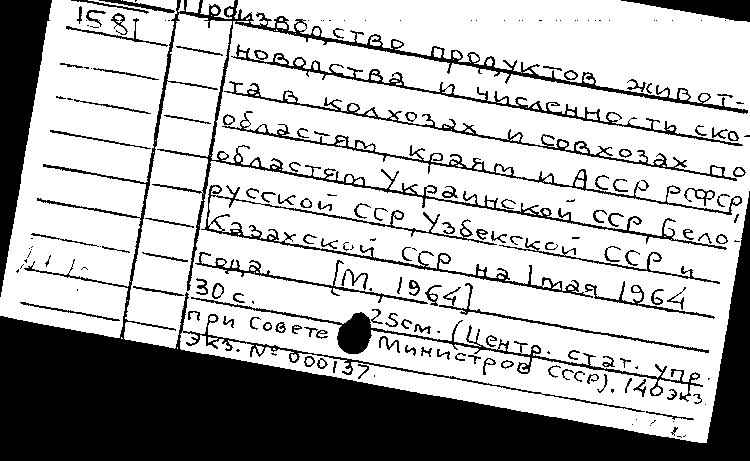 1581
Производство продуктов живот-
новодства и численность ско-
та в колхозах и совхозах по
областям, краям и АССР РСФСР,
областям Украинской ССР, Бело-
русской ССР, Узбекской ССР и
Казахской ССР на 1 мая 1964
года. [М., 1964].
30 с. 25см. (Центр. стат. упр.
при Совете Министров СССР). 140 экз.
Экз. № 000137.